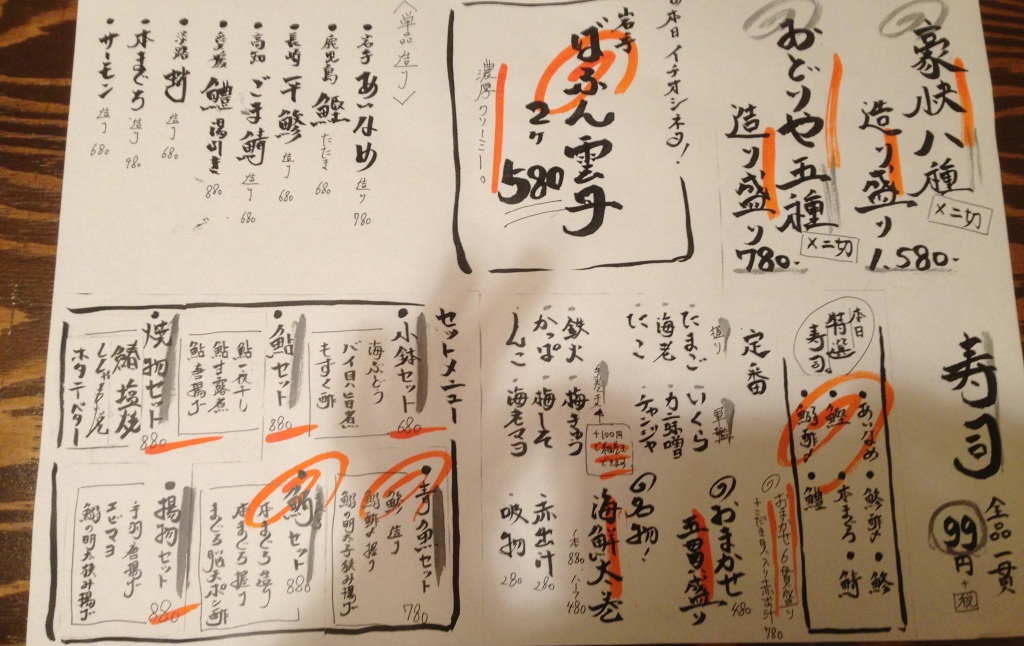 豪快八種
造り盛り
×二切
1,580-
おどりや五種
造り盛り
×二切
780-
本日イチオシネタ!
岩手
ばふん雲丹
2ヶ
580
濃厚クリーミー。
〈単品造り〉
・岩手 あいなめ 造り 980
・鹿児島 鰹 たたき 680
・長崎 平鯵 造り 680
・高知 ごま鯖 造り 680
・愛媛 鱧 湯引き 880
・淡路 蛸 造り 680
・本まぐろ 造り 980
・サーモン 造り 680
寿司
全品一貫
99円+税
本日
特選
寿司
・あいなめ
・鯵酢〆
・鯵
・鰹
・本まぐろ
・鰯酢〆
・鱧
の おまかせ6貫盛り
780
定番
握り
・たまご
・海老
・たこ
軍艦
・いくら
・カニ味噌
・チャンジャ
・鉄火
・かっぱ
・しんこ
・梅きゅう
・梅しそ
・海老マヨ
+100円
の おまかせ
五貫盛り 480
の 名物!
海鮮大巻
一本 880 ハーフ 480
赤出汁 280
吸物 280
セットメニュー
・小鉢セット
680
海ぶどう
バイ貝旨煮
もずく酢
・鮎セット
880
鮎一夜干し
鮎甘露煮
鮎唐揚げ
・焼物セット
880
ホタテバター
・青魚セット
780
鯵造り
鰯酢〆握り
鰯明太子挟み揚げ
・鮪セット
880
本まぐろ造り
本まぐろ握り
まぐろ脳天ポン酢
・揚物セット
880
手羽唐揚げ
エビマヨ
鰯の明太挟み揚げ